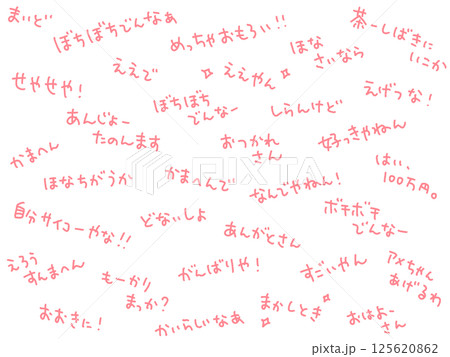 まいど
ぼちぼちでんなぁ
めっちゃおもろい!!
ほな
さいなら
茶ーしばきに
いこか
せやせや!
ええで
ええやん
ぼちぼち
でんなー
しらんけど
えげつな!
あんじょー
たのんます
おつかれ
さん
好っきゃねん
かまへん
はい、
100万円。
ほなちがうか
かまへんで
なんでやねん!
自分サイコーやな!!
どないしよ
あんがとさん
ボチボチ
でんなー
えろう
すんまへん
もーかり
まっか?
がんばりや!
すごいやん
アメちゃん
あげるわ
おおきに!
かいらしいなあ
まかしとき
おはよー
さん
PIXTA
pixta.jp - 125620862